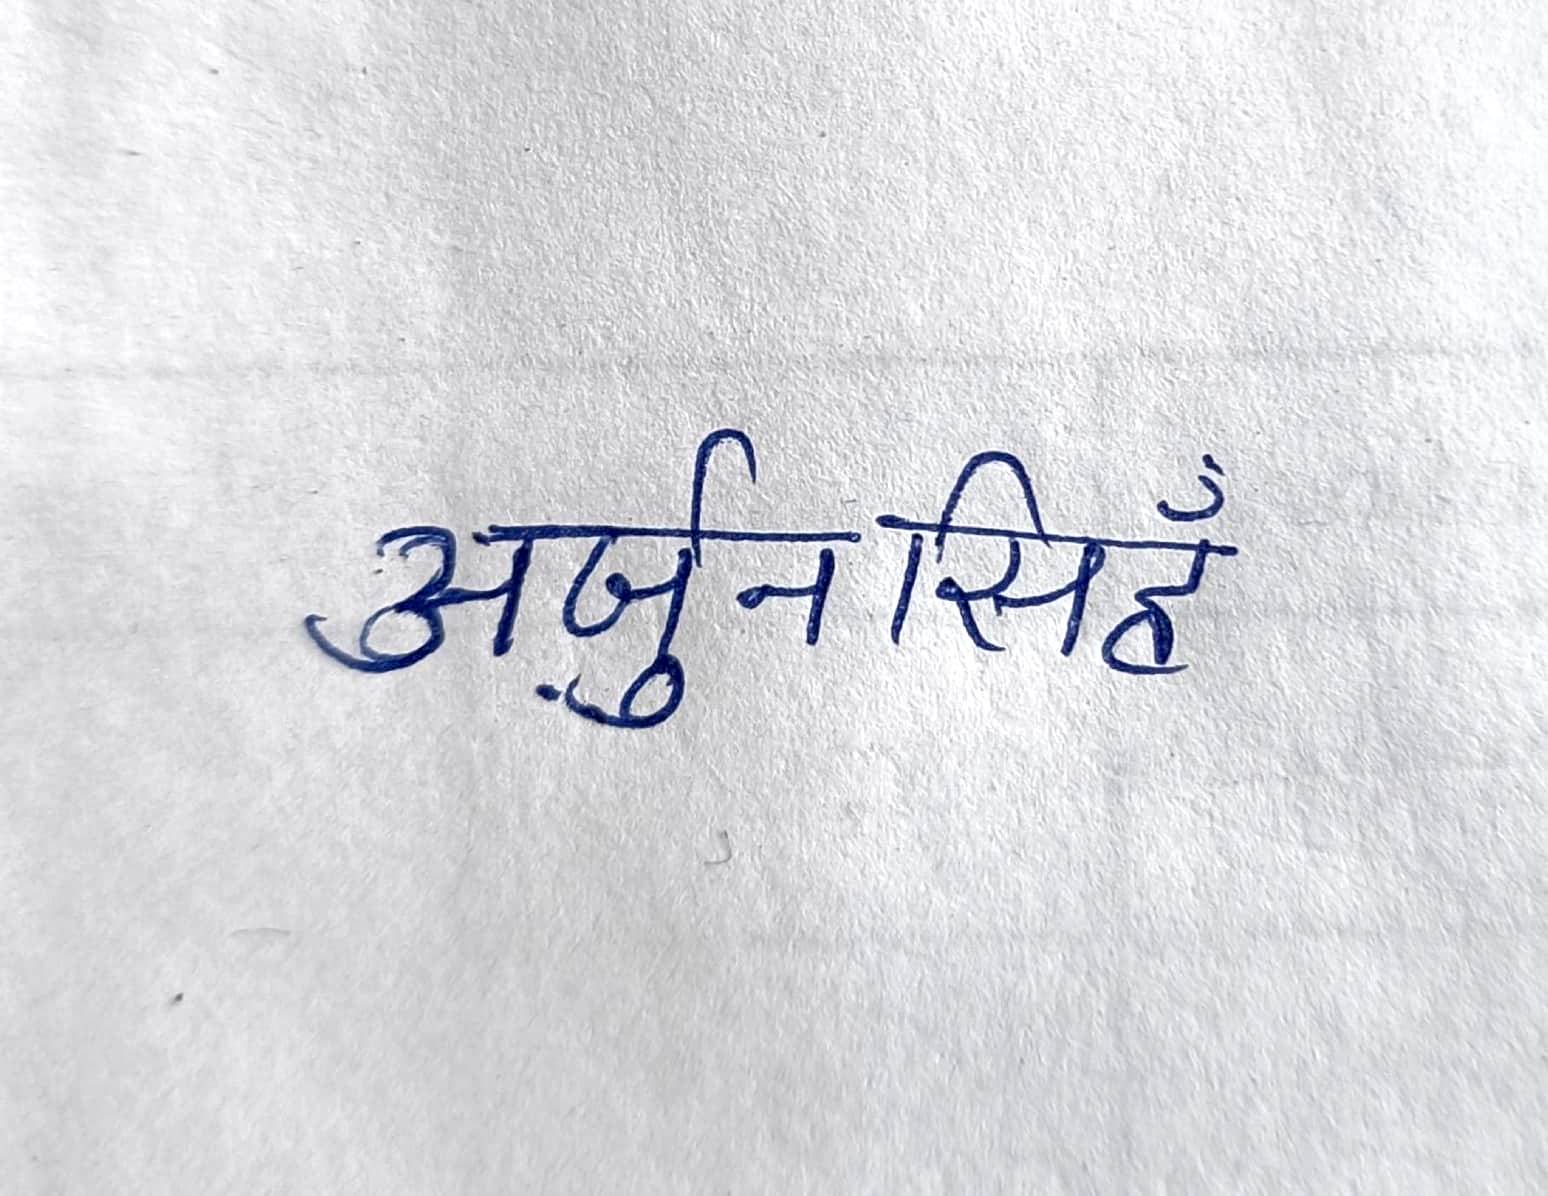 अर्जुन सिहँ